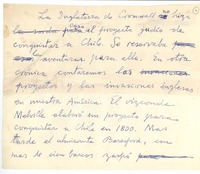 La Inglaterra de Cromwell no hizo
la sola para el proyecto judío de
conquistar a Chile. Se reservaba
aventuras para ella. En otra
crónica contaremos las
proyectos y las invasiones inglesas
en nuestra América. El vizconde
Melville elaboró un proyecto para
conquistar a Chile en 1800. Mas
tarde el almirante Beresford, con
mas de cien barcos zarpó